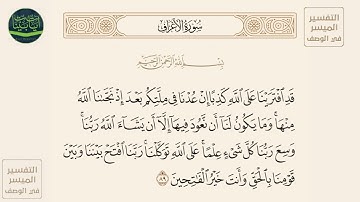 سُورَةُ الأَعْرَافِ
التفسير
الميسر
في الوصف
بِسْمِ اللَّهِ الرَّحْمَٰنِ الرَّحِيمِ
قَدِ ٱفْتَرَيْنَا عَلَى ٱللَّهِ كَذِبًا إِنْ عُدْنَا فِى مِلَّتِكُم بَعْدَ إِذْ نَجَّىٰنَا ٱللَّهُ
مِنْهَا ۚ وَمَا يَكُونُ لَنَآ أَن نَّعُودَ فِيهَآ إِلَّآ أَن يَشَآءَ ٱللَّهُ رَبُّنَا ۚ
وَسِعَ رَبُّنَا كُلَّ شَىْءٍ عِلْمًا ۚ عَلَى ٱللَّهِ تَوَكَّلْنَا ۚ رَبَّنَا ٱفْتَحْ بَيْنَنَا وَبَيْنَ
قَوْمِنَا بِٱلْحَقِّ وَأَنتَ خَيْرُ ٱلْفَٰتِحِينَ ٨٩
التفسير
الميسر
في الوصف